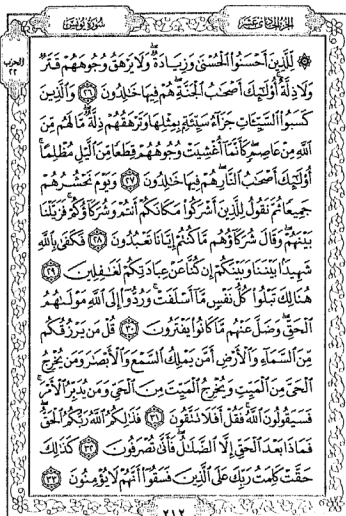 سُورَةُ يُونُسَ
الجُزْءُ الحَادِي عَشَرَ
الحزب ٢٢
۞ لِّلَّذِينَ أَحْسَنُوا۟ ٱلْحُسْنَىٰ وَزِيَادَةٌ ۖ وَلَا يَرْهَقُ وُجُوهَهُمْ قَتَرٌ
وَلَا ذِلَّةٌ ۚ أُو۟لَٰٓئِكَ أَصْحَٰبُ ٱلْجَنَّةِ ۖ هُمْ فِيهَا خَٰلِدُونَ ٢٦ وَٱلَّذِينَ
كَسَبُوا۟ ٱلسَّيِّـَٔاتِ جَزَآءُ سَيِّئَةٍۭ بِمِثْلِهَا وَتَرْهَقُهُمْ ذِلَّةٌ ۖ مَّا لَهُم مِّنَ
ٱللَّهِ مِنْ عَاصِمٍ ۖ كَأَنَّمَآ أُغْشِيَتْ وُجُوهُهُمْ قِطَعًا مِّنَ ٱلَّيْلِ مُظْلِمًا ۚ
أُو۟لَٰٓئِكَ أَصْحَٰبُ ٱلنَّارِ ۖ هُمْ فِيهَا خَٰلِدُونَ ٢٧ وَيَوْمَ نَحْشُرُهُمْ
جَمِيعًا ثُمَّ نَقُولُ لِلَّذِينَ أَشْرَكُوا۟ مَكَانَكُمْ أَنتُمْ وَشُرَكَآؤُكُمْ ۚ فَزَيَّلْنَا
بَيْنَهُمْ ۖ وَقَالَ شُرَكَآؤُهُم مَّا كُنتُمْ إِيَّانَا تَعْبُدُونَ ٢٨ فَكَفَىٰ بِٱللَّهِ
شَهِيدًۢا بَيْنَنَا وَبَيْنَكُمْ إِن كُنَّا عَنْ عِبَادَتِكُمْ لَغَٰفِلِينَ ٢٩
هُنَالِكَ تَبْلُوا۟ كُلُّ نَفْسٍ مَّآ أَسْلَفَتْ ۚ وَرُدُّوٓا۟ إِلَى ٱللَّهِ مَوْلَىٰهُمُ
ٱلْحَقِّ ۖ وَضَلَّ عَنْهُم مَّا كَانُوا۟ يَفْتَرُونَ ٣٠ قُلْ مَن يَرْزُقُكُم
مِّنَ ٱلسَّمَآءِ وَٱلْأَرْضِ أَمَّن يَمْلِكُ ٱلسَّمْعَ وَٱلْأَبْصَٰرَ وَمَن يُخْرِجُ
ٱلْحَىَّ مِنَ ٱلْمَيِّتِ وَيُخْرِجُ ٱلْمَيِّتَ مِنَ ٱلْحَىِّ وَمَن يُدَبِّرُ ٱلْأَمْرَ ۚ
فَسَيَقُولُونَ ٱللَّهُ ۚ فَقُلْ أَفَلَا تَتَّقُونَ ٣١ فَذَٰلِكُمُ ٱللَّهُ رَبُّكُمُ ٱلْحَقُّ ۖ
فَمَاذَا بَعْدَ ٱلْحَقِّ إِلَّا ٱلضَّلَٰلُ ۖ فَأَنَّىٰ تُصْرَفُونَ ٣٢ كَذَٰلِكَ
حَقَّتْ كَلِمَتُ رَبِّكَ عَلَى ٱلَّذِينَ فَسَقُوٓا۟ أَنَّهُمْ لَا يُؤْمِنُونَ ٣٣
٢١٢